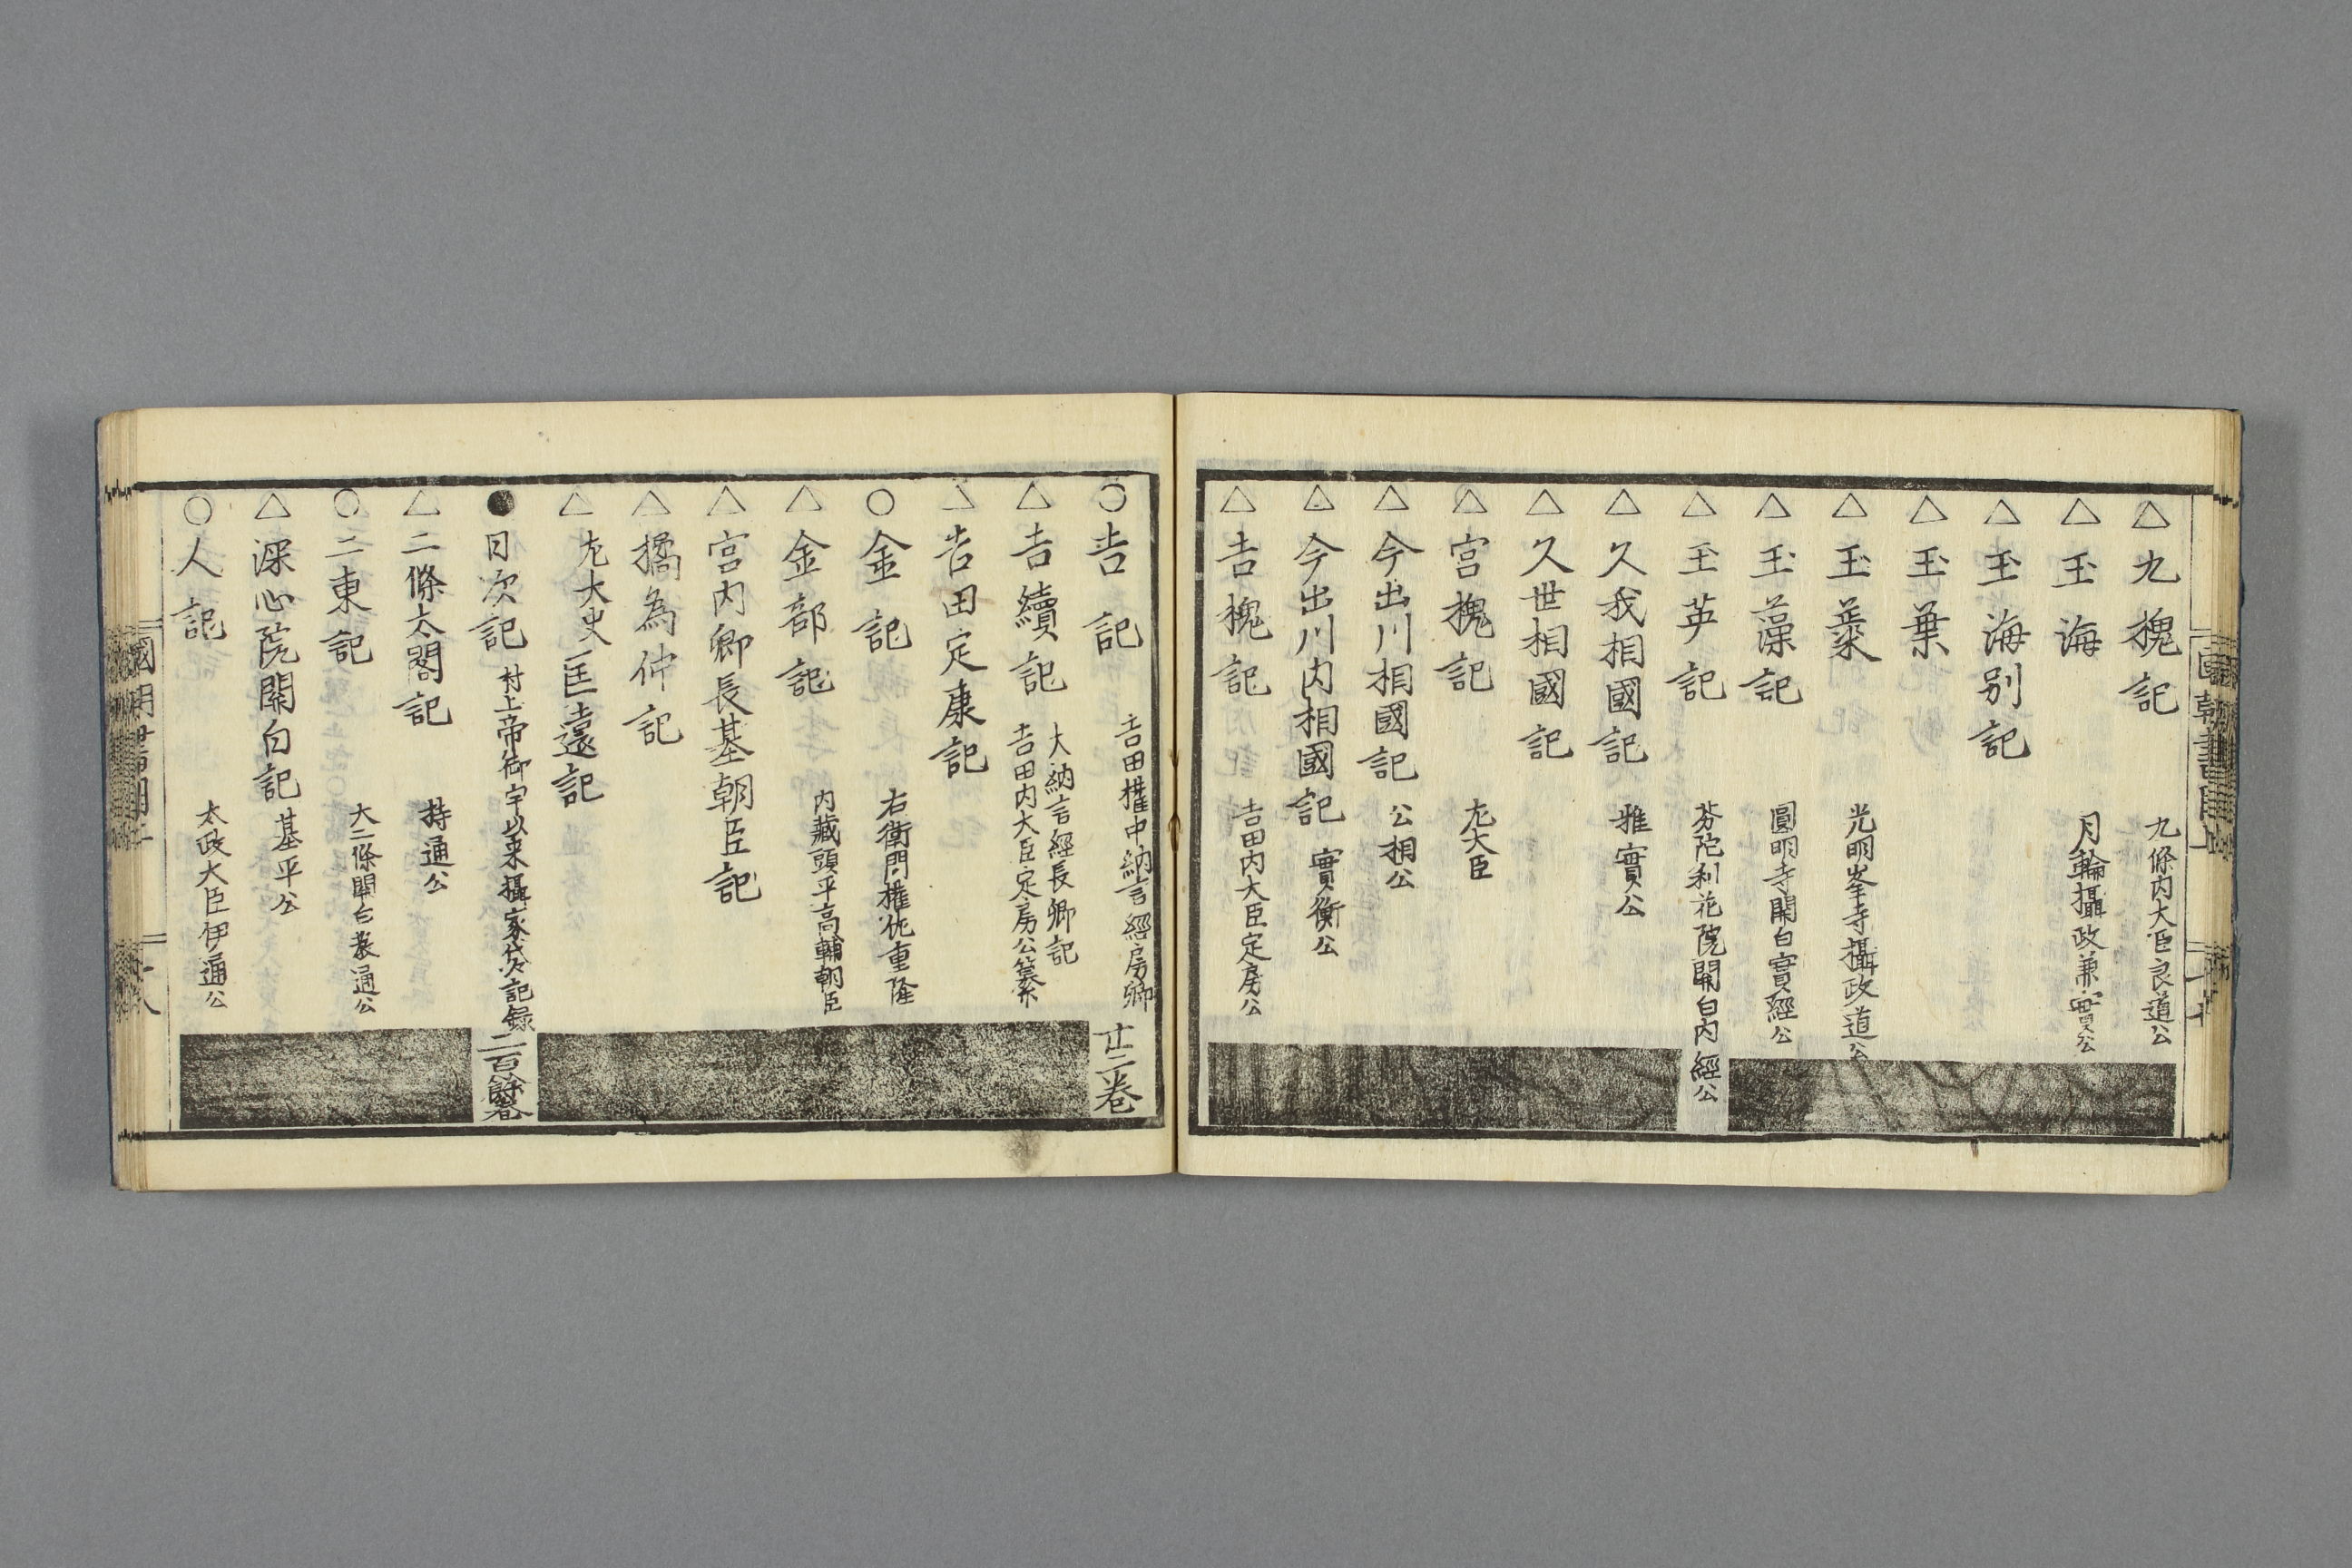 △九槐記 九條内大臣良道公
△玉海 月輪攝政兼實公
△玉海別記
△玉葉
△玉蘂 光明峯寺攝政道公
△玉藻記 圓明寺關白實經公
△玉英記 芬陀利花院關白内經公
△久我相國記 雅實公
△久世相國記
△宮槐記 左大臣
△今出川相國記 公相公
△今出川内相國記 實衡公
△吉槐記 吉田内大臣定房公
○吉記 吉田權中納言經房卿 廿二巻
△吉續記 大納言經長卿記
吉田内大臣定房公纂
△吉田定康記
○金記 右衛門權佐重隆
△金部記 内藏頭平高輔朝臣
△宮内卿長基朝臣記
△橘為仲記
△左大史匡遠記
●日次記 村上帝御宇以来攝家代々記録 二百餘巻
△二條太閤記 持通公
○二東記 大二條關白教通公
△深心院關白記 基平公
○人記 太政大臣伊通公